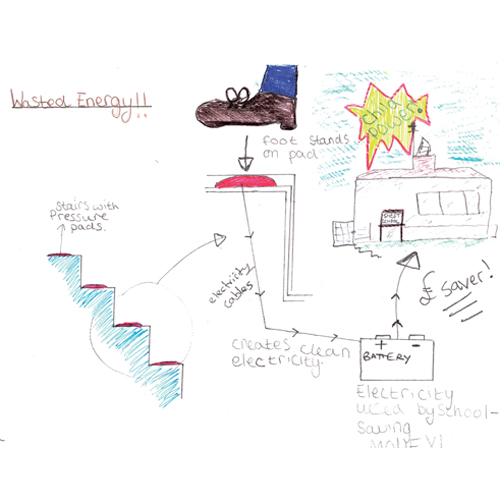 Wasted Energy!!
foot stands
on pad
child
power!
Stairs with
Pressure
pads.
electricity
cables
£ saver!
creates clean
electricity.
+ -
BATTERY
Electricity
used by School-
Saving
MONEY!